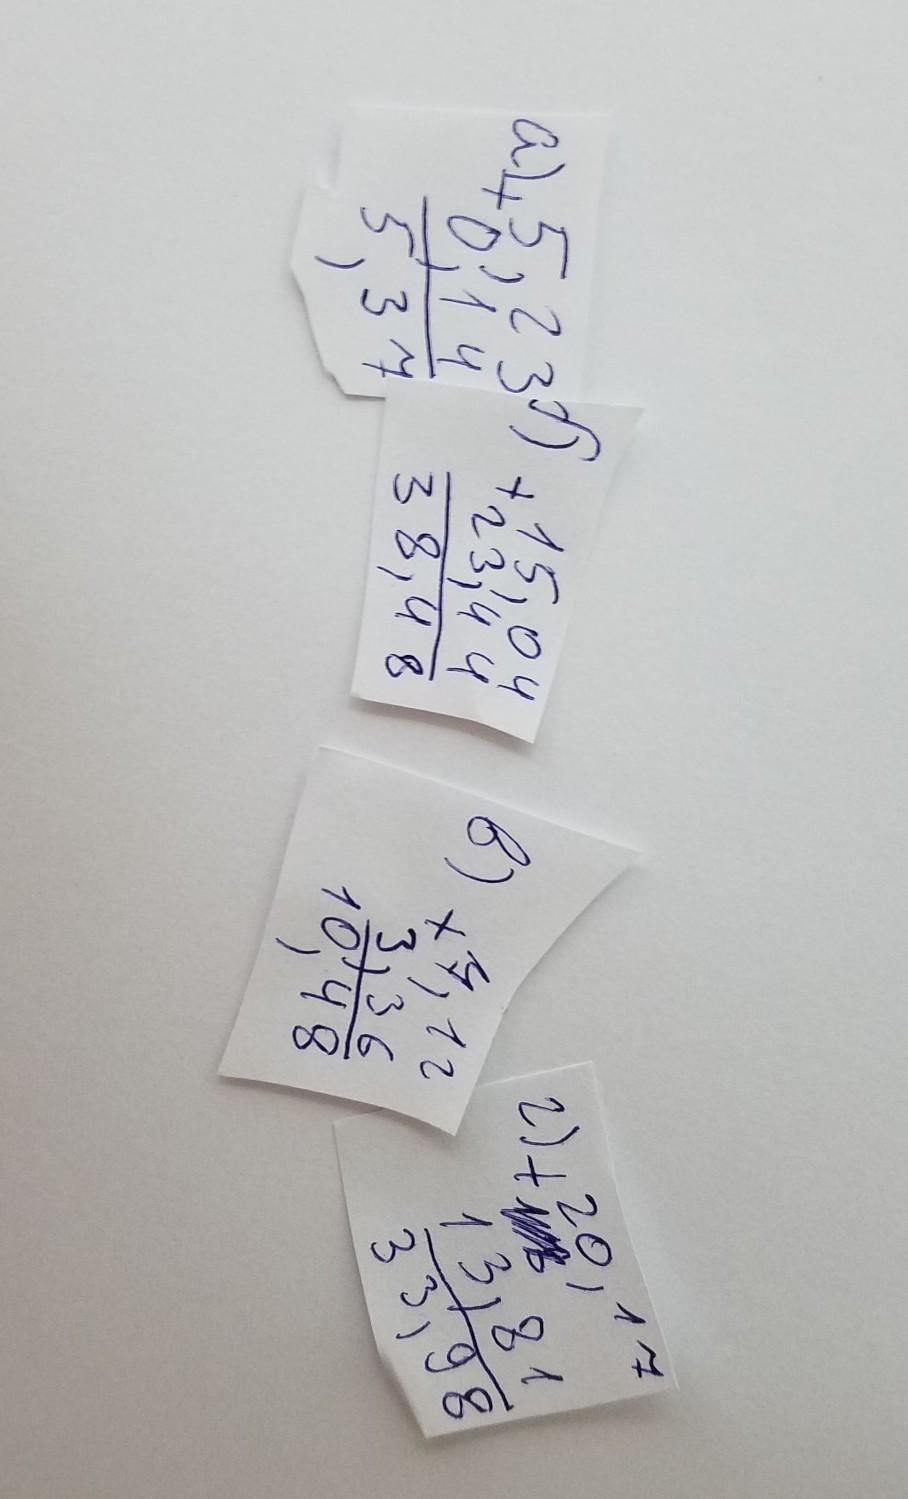 а) + 5,23
0,14
5,37
б) + 15,04
23,44
38,48
в) + 7,12
3,36
10,48
г) + 20,17
13,81
33,98